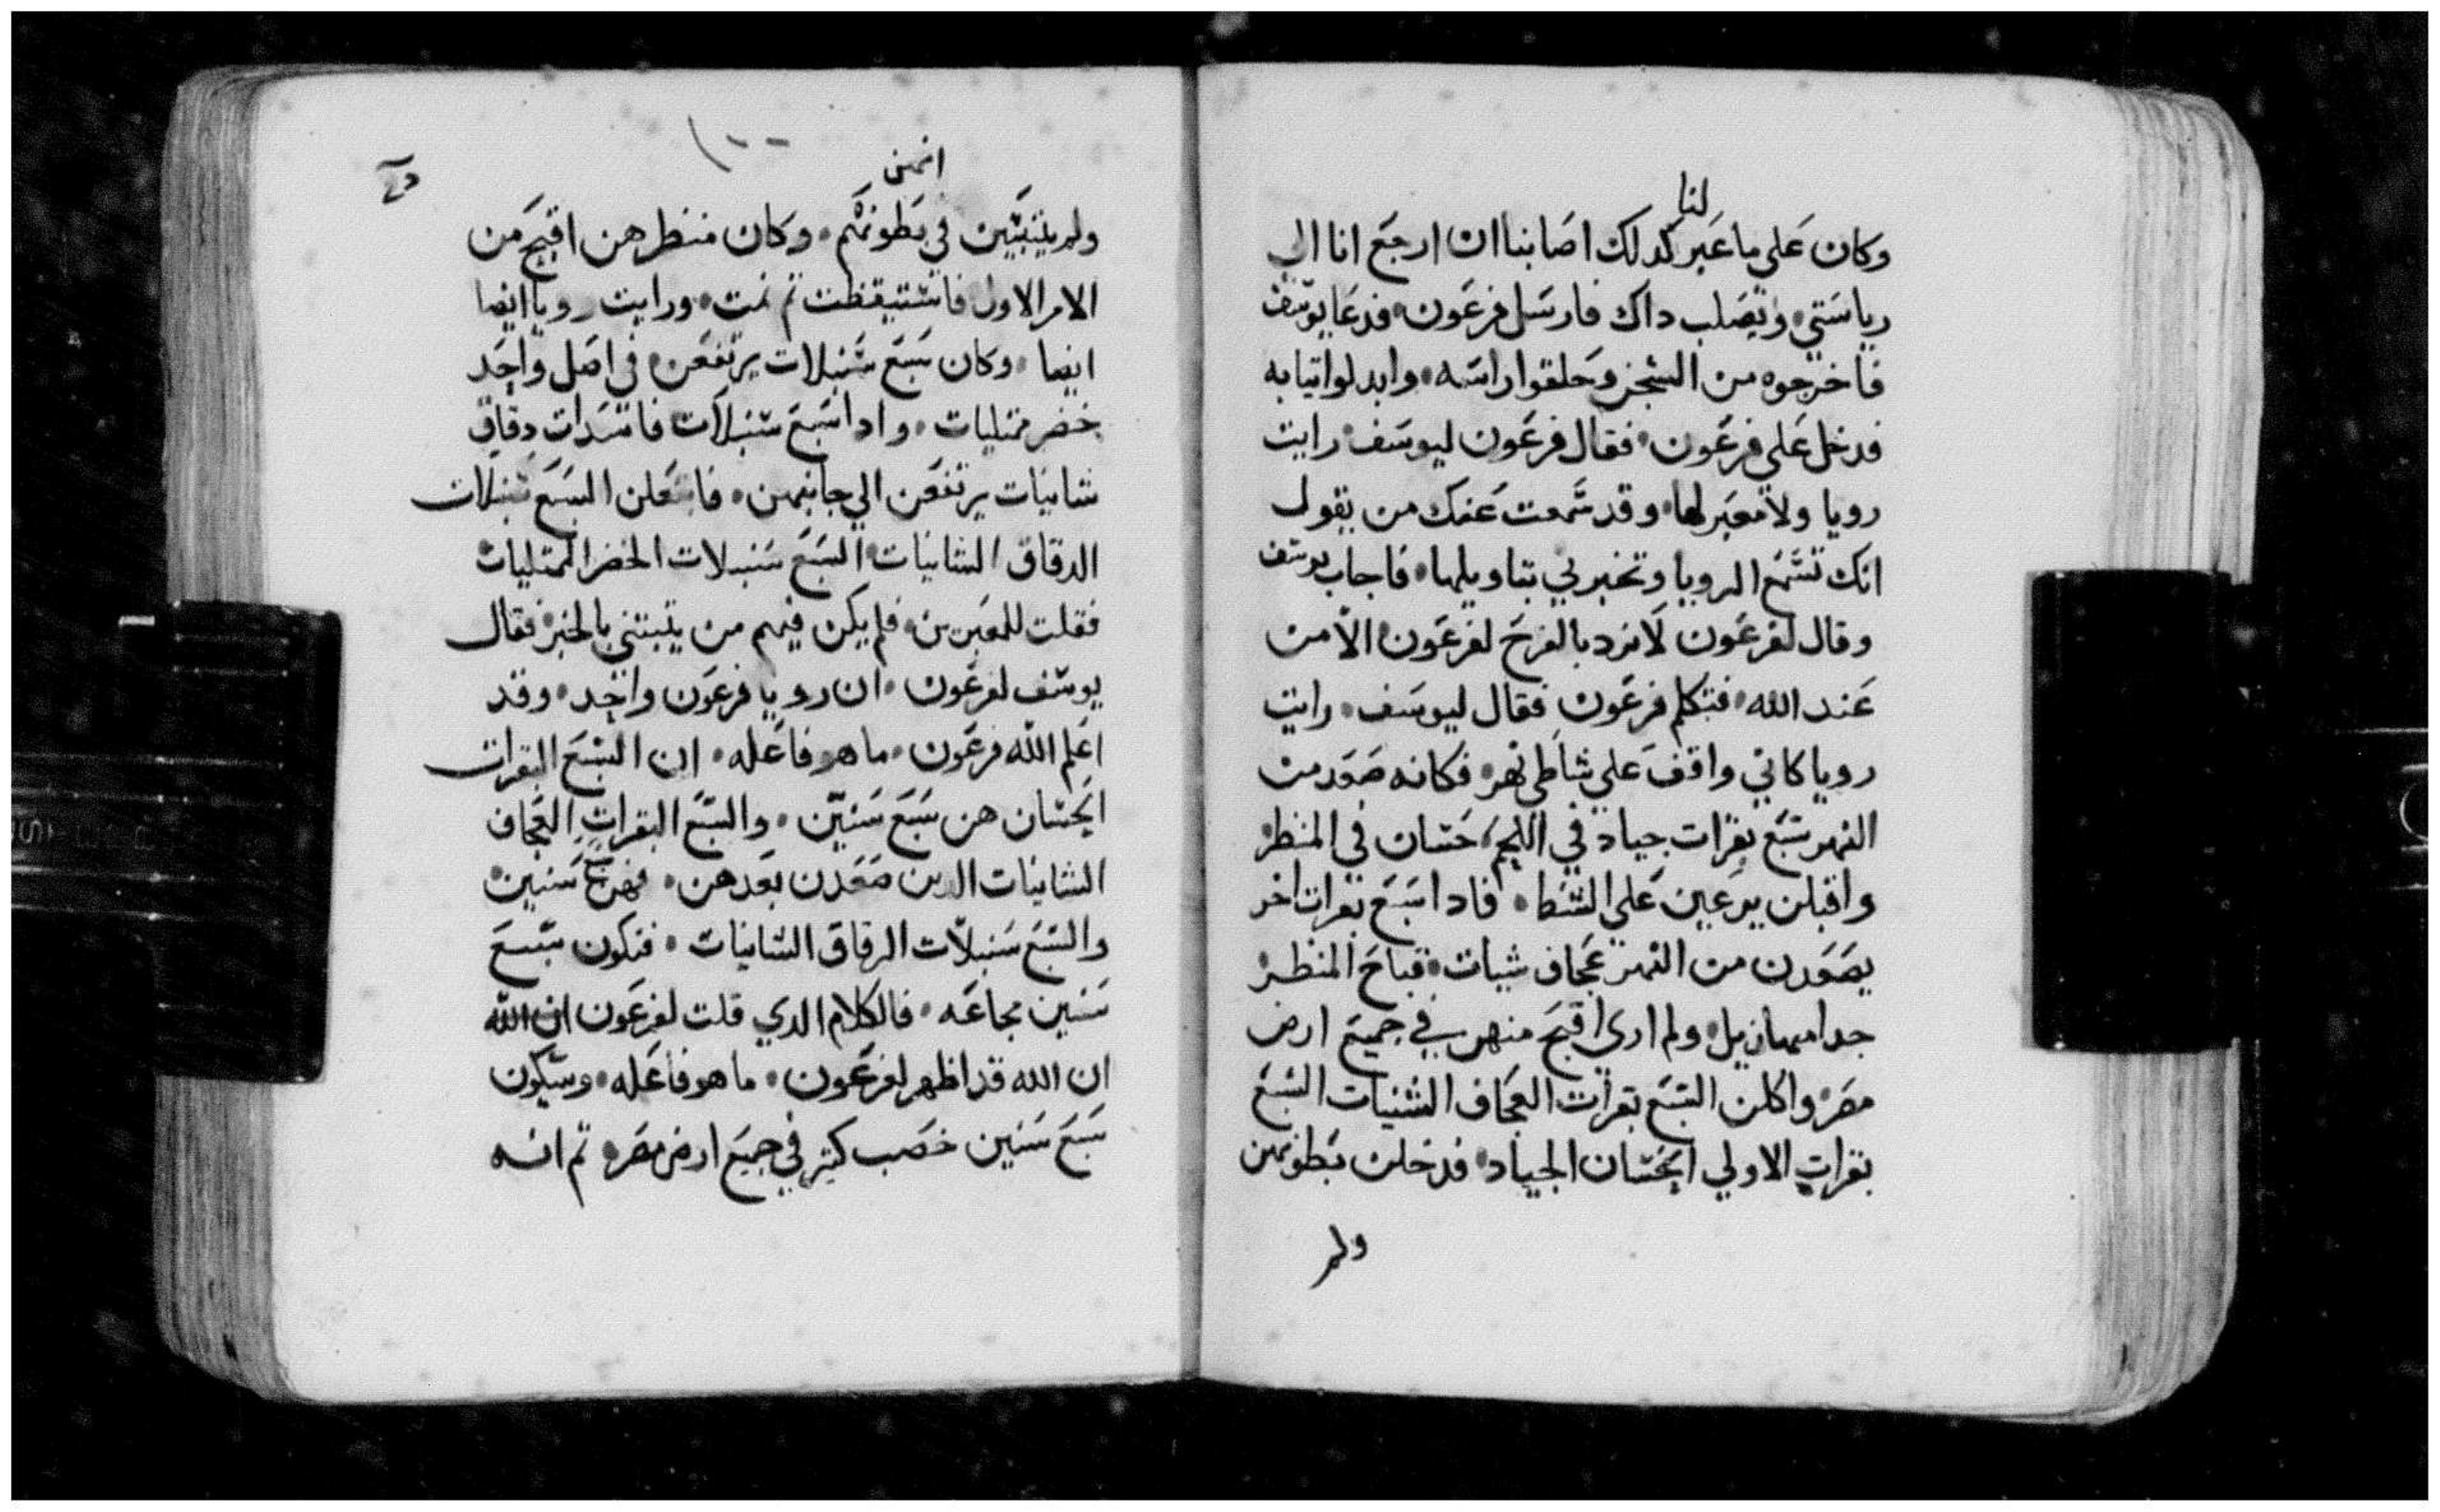 لنا
وكان على ما عبر كدلك اصابنا ان ارجع انا الي
رياستي، ويصلب داك فارسل فرعون، فدعا يوسف
فاخرجوه من السجن وحلقوا راسه، وابدلوا تيابه
فدخل على فرعون، فقال فرعون ليوسف، رايت
رويا ولا معبر لها، وقد سمعت عنك من يقول
انك تسمع الرويا وتخبرني بتاويلها، فاجاب يوسف
وقال لفرعون لا يرد بالفرح لفرعون الا من
عند الله، فتكلم فرعون فقال ليوسف، رايت
رويا كاني واقف علي شاطي نهر، فكانه صعد من
النهر سبع بقرات جياد في اللحم، حسان في المنظر
واقبلن يرعين علي الشط، فادا سبع بقرات اخر
يصعدن من النهر عجاف شيات، قباح المنظر
جدا مهازيل، ولم اري اقبح منهن في جميع ارض
مصر، واكلن السبع بقرات العجاف الشنيات السبع
بقرات الاولي الحسان الجياد، فدخلن بطونهن
ولم
انهن
ولم يتبين في بطونهم، وكان منظرهن اقبح من
الامر الاول فاستيقظت تم نمت، ورايت رويا ايضا
ايضا، وكان سبع سنبلات يرتفعن، في اصل واحد
خضر ممتليات، وادا سبع سنبلات فاسدات دقاق
شانيات يرتفعن الي جانبهن، فابتعلن السبع سنبلات
الدقاق الشانيات، السبع سنبلات الخضر الممتليات
فقلت للمعبرين، فلم يكن فيهم من يتبتني بالخبر، فقال
يوسف لفرعون، ان رويا فرعون واحد، وقد
اعلم الله فرعون، ما هو فاعله، ان السبع البقرات
الحسان هن سبع سنين، والسبع البقرات العجاف
الشانيات الدين صعدن بعدهن، فهن سبع سنين
والسبع سنبلات الرقاق الشانيات، فتكون سبع
سنين مجاعه، فالكلام الدي قلت لفرعون ان الله
ان الله قد اظهر لفرعون، ما هو فاعله، وستكون
سبع سنين خصب كتير في جميع ارض مصر، تم انه